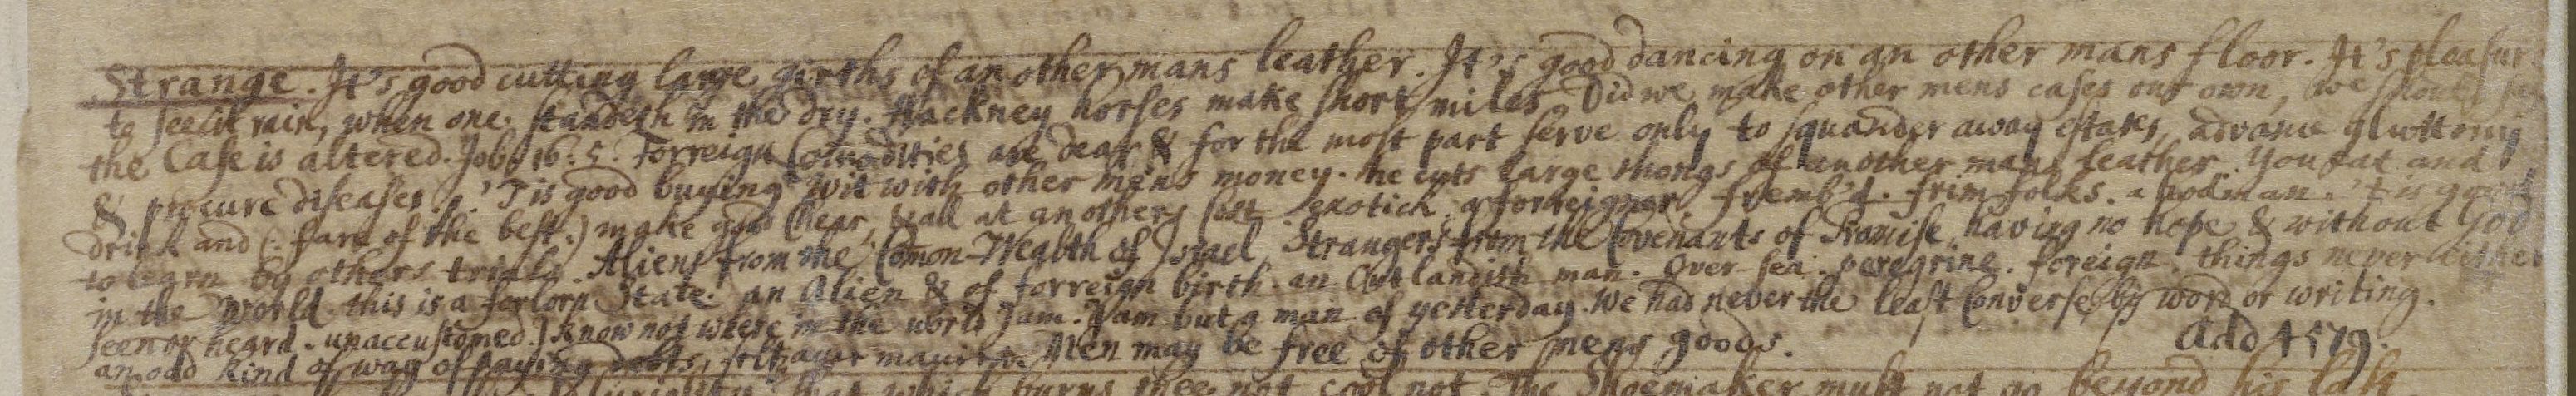 Strange. It's good cutting large girths of an other mans leather. It's good dancing on an other mans floor. It's pleasur
to see it rain, when one standeth in the dry. Hackney horses make short miles. Did we make other mens cases our own, we should say
the Case is altered. Job. 16: 5. Forreign Comodities are dear & for the most part serve only to squander away estates, advance gluttony
& procure diseases. 'Tis good buying wit with other mens money. he cuts large thongs of another mans leather. You eat and
drink and (: fare of the best:) make good chear, & all at anothers cost exotick. a forreigner, fremb'd. frim folks. a nodman. 't is good
to learn by others trials. Aliens from the Comon-Wealth of Israel, Strangers from the Covenants of Promise, having no hope & without God
in the World. this is a forlorn State. an Alien & of forreign birth. an Outlandish man. Over-sea. peregrine. foreign. things never either
seen or heard. unaccustomed. I know not where in the world I am. I am but a man of yesterday. We had never the least Converse by word or writing.
an odd kind of way of paying debts, Men may be free of other mens goods. Add 4579.
that which burns thee not cool not. The Shoemaker must not go beyond his last